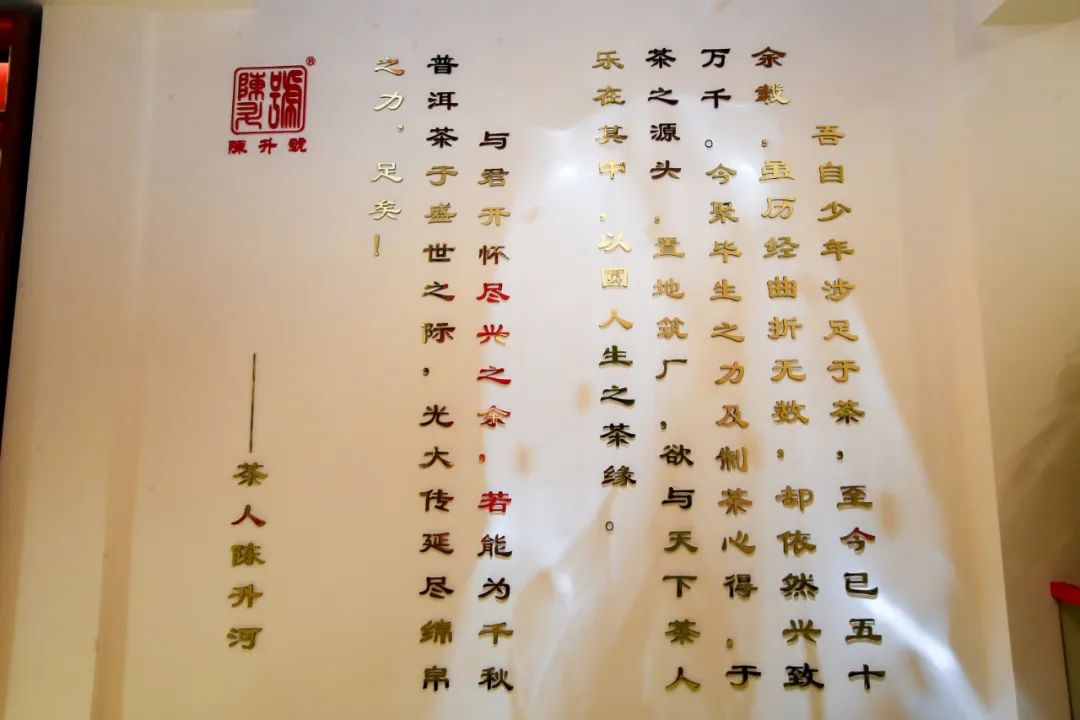 吾自少年涉足于茶，至今已五十
余载，虽历经曲折无数，却依然兴致
万千。今聚毕生之力及制茶心得，于
茶之源头，置地筑厂，欲与天下茶人
乐在其中，以圆人生之茶缘。
与君开怀尽兴之余，若能为千秋
普洱茶于盛世之际，光大传延尽绵帛
之力，足矣！
——茶人陈升河
陳升號
®
陳升號